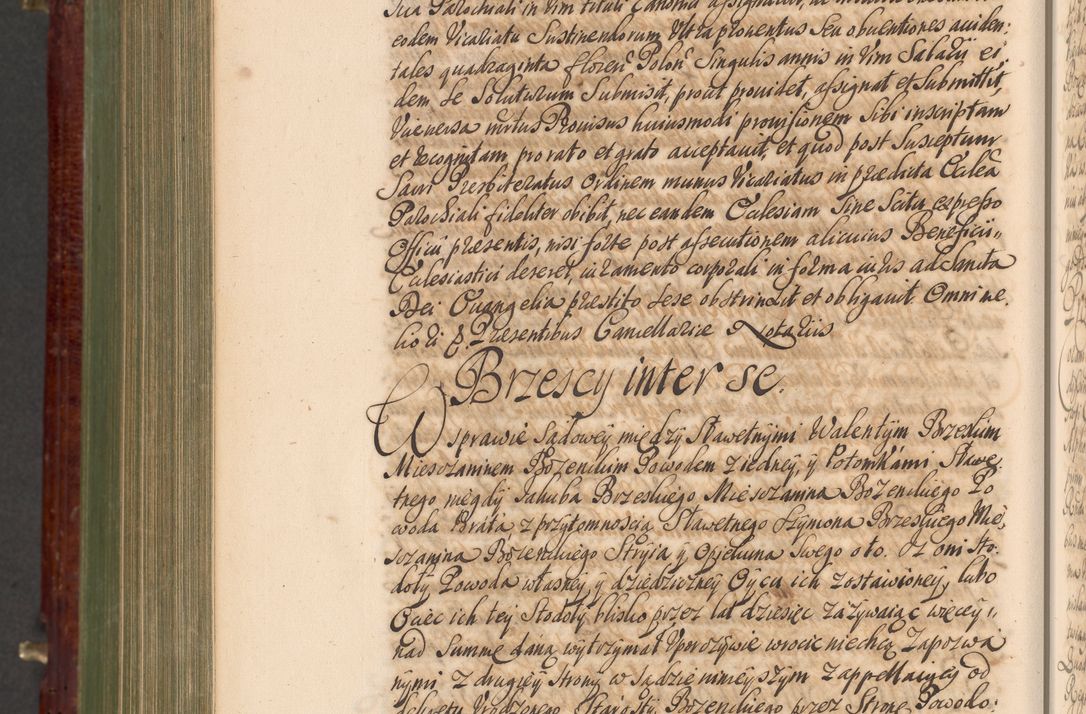 sua Parochiali in vim tituli Canonici assignatur, ac
eodem Vicariatu Sustinendorum Ultra proventus Seu obventiones acciden:
tales quadraginta floren Polon Singulis annis in Vim Salarij ei
dem se Soluturum Submisit, prout providet, assignat et Submittit,
Viceversa Provisus huiusmodi provisionem Sibi inscriptam
et recognitam pro rato et grato acceptavit, et quod post Susceptum
Sacri Presbiteratus Ordinem munus Vicariatus in praedicta Ecclea
Parochiali fideliter obibit, nec eandem Ecclesiam Sine Scitu expresso
Officii praesentis, nisi forte post assecutionem alicuius Beneficii,,
Ecclesiastici deseret, iuramento corporali in forma iuris ad Sancta
Dei Evangelia praestito sese obstrinxit et obligavit Omni me.
liori P. Praesentibus Cancellariae Notariis
Brzescy inter se.
W sprawie Sądowey między Sławetnymi Walentym Brzeskim
Miesczaninem Bozenckim Powodem z iedney, y Potomkami Sławe.
tnego niegdy Jakuba Brzeskiego Miesczanina Bozenckiego Po
woda Brata, z przytomnoscią Sławetnego Szymona Brzeskiego Mie,
sczanina Bozenckiego Stryia y Opiekuna Swego o to. Iz oni Sto.
doły Powoda własney, y dziedziczney Oycu ich zostawioney, lubo
Ociec ich tey Stodoły blisko przez lat dziesięc zazywaiąc więcey,,
nad Summę daną wytrzymał Uporczywie wrocic niechcą Zapozwa
nymi z drugiey Strony w Sądzie ninieyszym z appellacyey od
dekretu Urodzonego Starosty Bozenckiego przez Stronę Powodo: